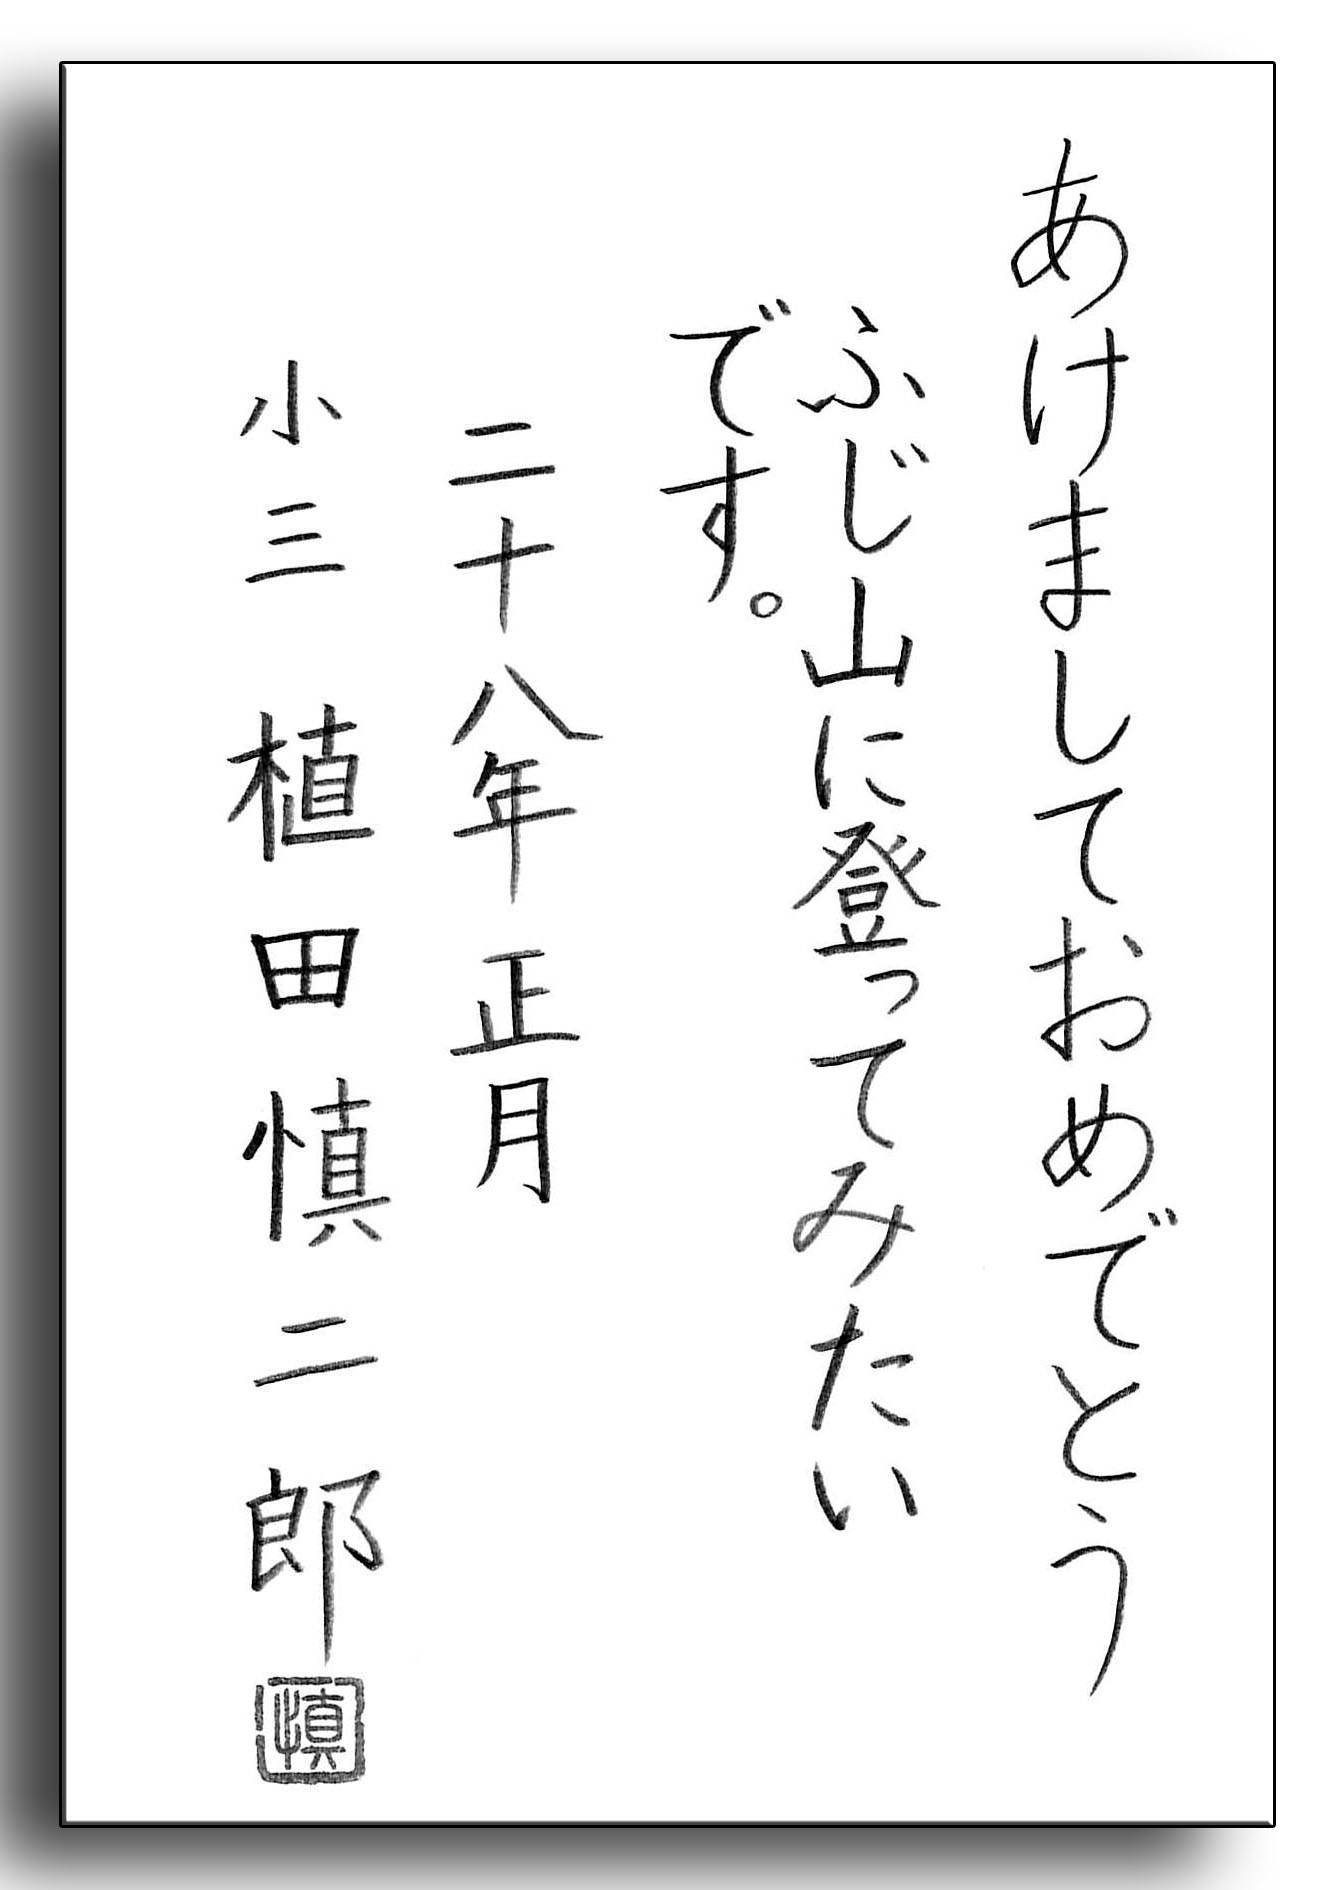 あけましておめでとう
ふじ山に登ってみたい
です。
二十八年 正月
小三 植田慎二郎
慎